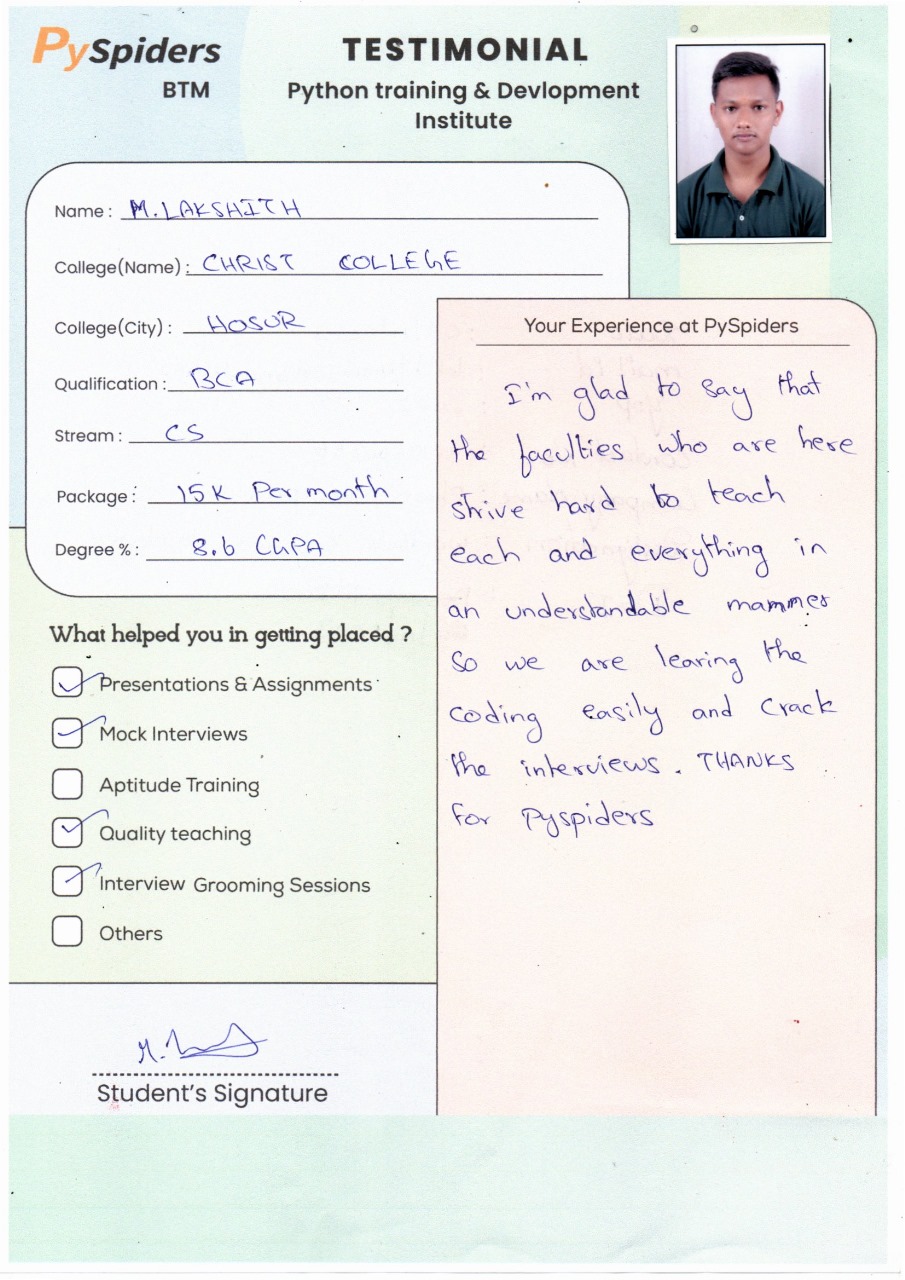 PySpiders
BTM
TESTIMONIAL
Python training & Devlopment
Institute
Name : M. LAKSHITH
College(Name) : CHRIST COLLEGE
College(City) : HOSUR
Qualification : BCA
Stream : CS
Package : 15K Per month
Degree % : 8.6 CGPA
What helped you in getting placed ?
Presentations & Assignments
Mock Interviews
Aptitude Training
Quality teaching
Interview Grooming Sessions
Others
Student's Signature
Your Experience at PySpiders
I'm glad to say that
the faculties who are here
strive hard to teach
each and everything in
an understandable mammer
so we are learing the
coding easily and crack
the interviews. THANKS
for Pyspiders